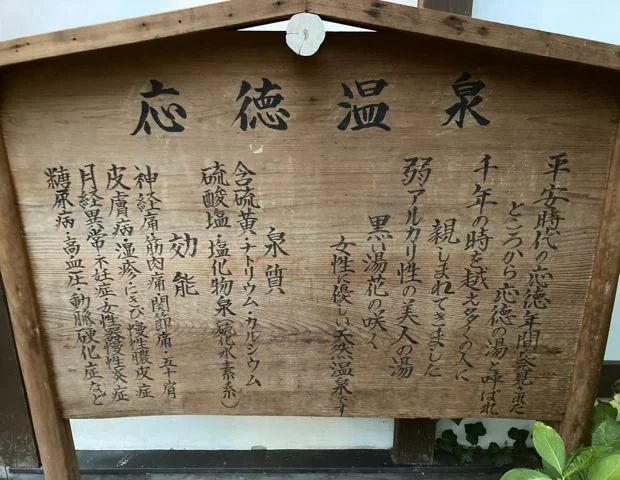 応徳温泉
平安時代の応徳年間発見された
ところから応徳の湯と呼ばれ
千年の時を越え多くの人に
親しまれてきました
弱アルカリ性の美人の湯
黒い湯花の咲く
女性に優しい天然温泉です
泉質
含硫黄・ナトリウム・カルシウム
硫酸塩・塩化物泉(硫化水素系)
効能
神経痛・筋肉痛・関節痛・五十肩
皮膚病・湿疹・にきび・慢性膿皮症
月経異常・不妊症・女性器慢性炎症
糖尿病・高血圧・動脈硬化症など